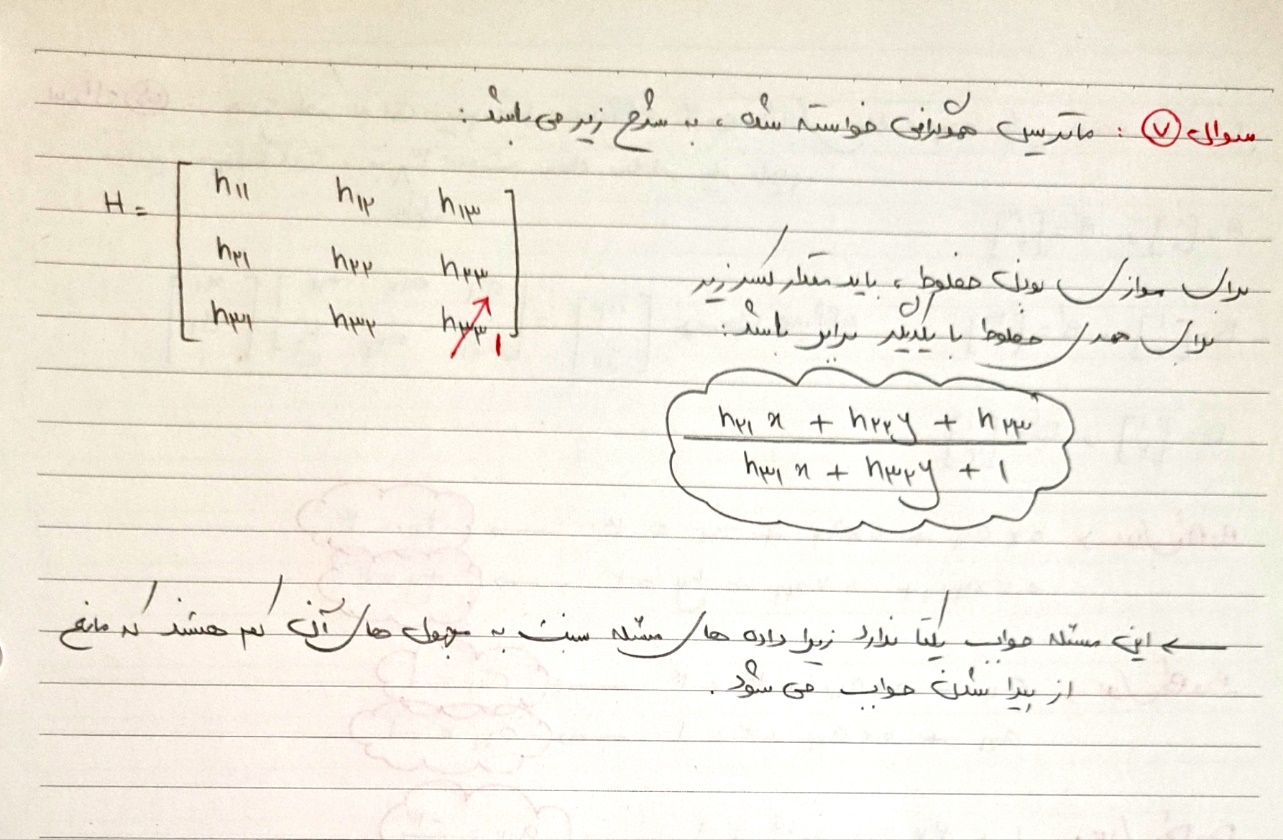 سوال ۷ : ماتریس هموگرافی خواسته شده ، به شرح زیر می باشد :
H = [ h۱۱ h۱۲ h۱۳
h۲۱ h۲۲ h۲۳
h۳۱ h۳۲ h۳۳ ] 1
برای موازی بودن خطوط ، باید مقدار کسر زیر
برای همه ی خطوط با یکدیگر برابر باشد :
h۲۱ x + h۲۲ y + h۲۳
h۳۱ x + h۳۲ y + 1
← این مسئله جواب یکتا ندارد زیرا داده های مسئله نسبت به مجهول های آن کم هستند که مانع
از پیدا شدن جواب می شود .